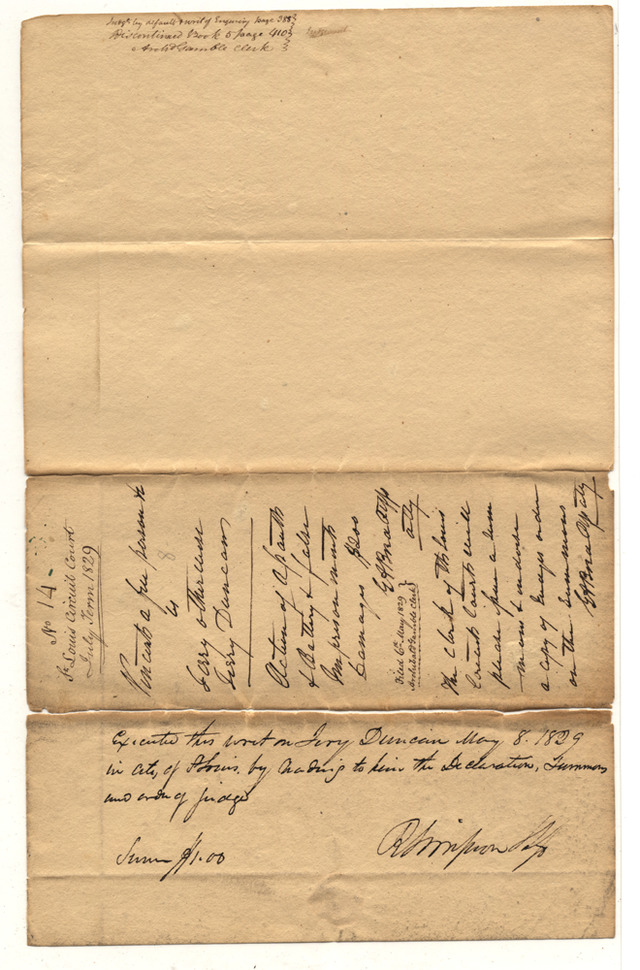 Judgt. by default & writ of Enquiry page 388
Discontinued Book 5 page 410
Archd Gamble Clerk
No 14
St Louis Circuit Court
July Term 1829
Vincent a free person &c
vs
Jerry otherwise
Jerry Duncan
8
Action of Assault
& Battery & false
Imprisonment
Damages $200
atty
Filed 6th May 1829
Archibald Gamble Clerk
The Clerk of St Louis
Circuit Court will
please issue a sum
mons & endorse
a copy of Judges order
on the summons
atty
Executed this writ on Jery Duncan May 8. 1829
in City of St Louis by reading to him the Declaration, Summons
and order of judge
$1.00
R Simpson Shff